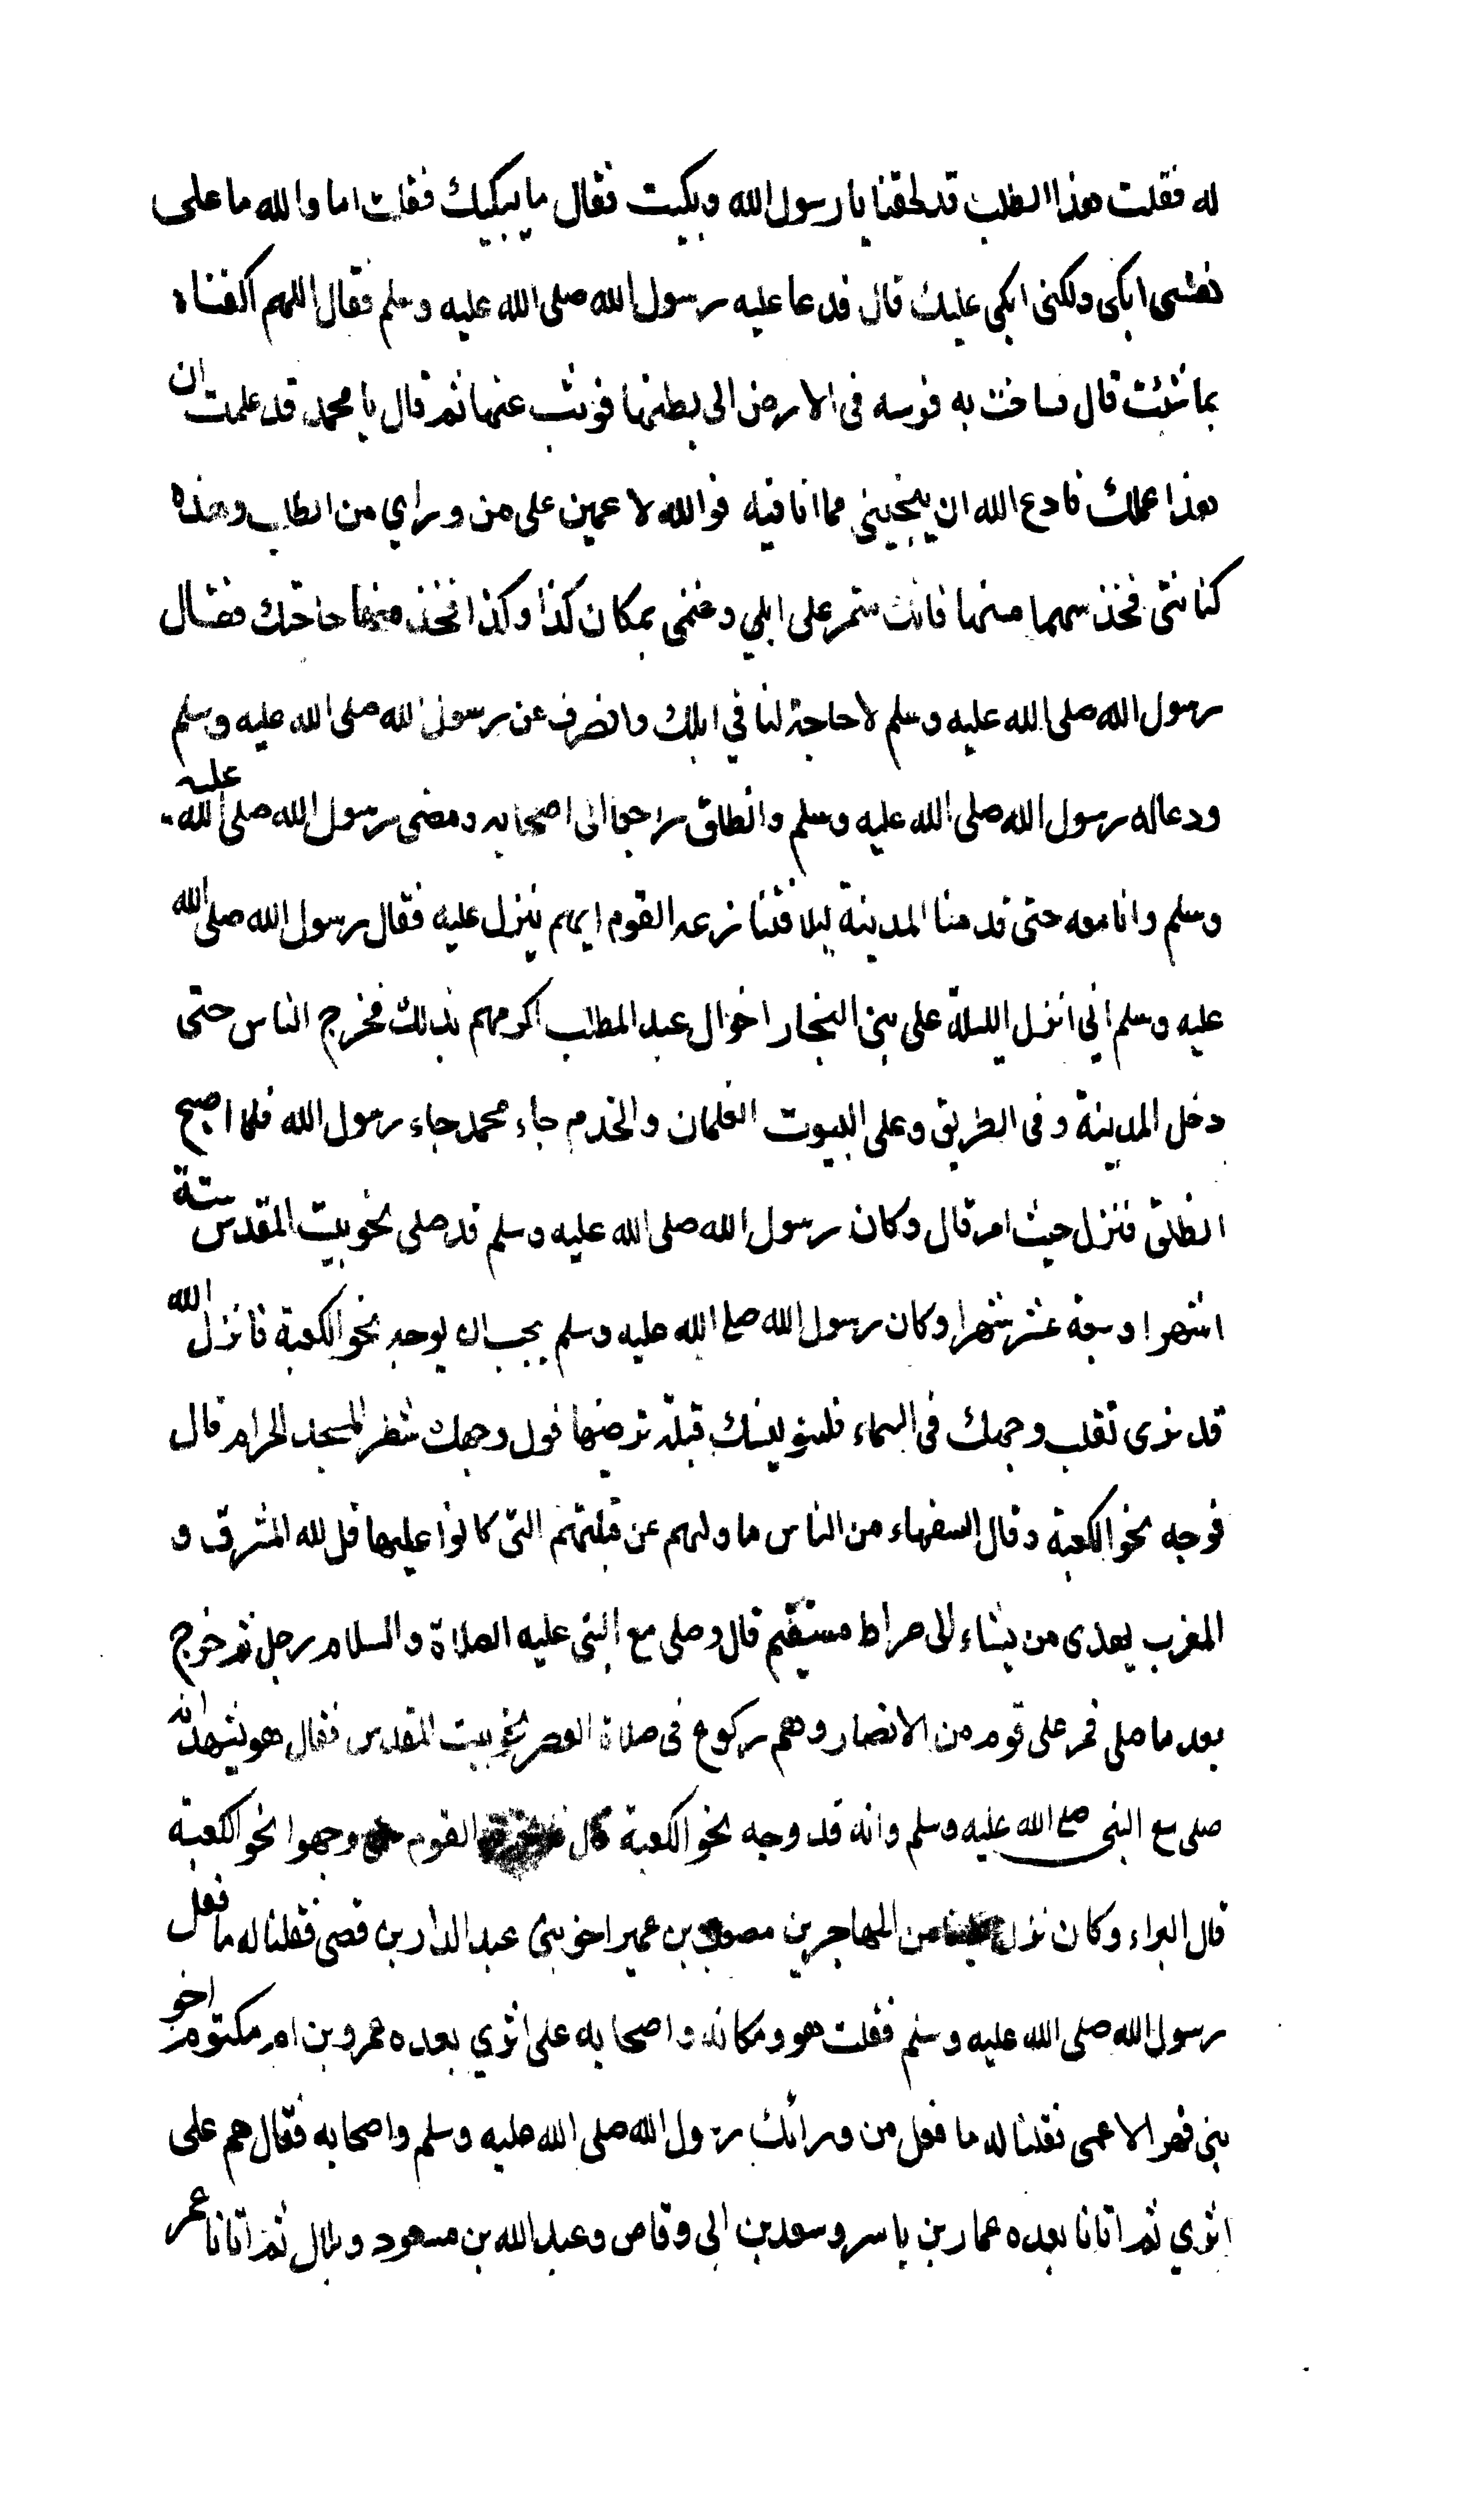 له فقلت هذا الطلب قد لحقنا يا رسول الله وبكيت فقال ما يبكيك فقلت اما والله ما على
نفسى ابكى ولكنى ابكي عليك قال فدعا عليه رسول الله صلى الله عليه وسلم فقال اللهم اكفناه
بما شئت قال فساخت به فرسه فى الارض الى بطنها فوثب عنها ثم قال يا محمد قد علمت ان
هذا عملك فادع الله ان ينجيني مما انا فيه فوالله لا عمين على من وراي من الطلب وهذه
كنانتى فخذ سهما منها فانك ستمر على ابلي وغنمى بمكان كذا وكذا فخذ منها حاجتك فقال
رسول الله صلى الله عليه وسلم لا حاجة لنا في ابلك وانصرف عن رسول الله صلى الله عليه وسلم
ودعا له رسول الله صلى الله عليه وسلم وانطلق راجعا الى اصحابه ومضى رسول الله صلى الله عليه
وسلم وانا معه حتى قدمنا المدينة ليلا فتنازعه القوم ايهم ينزل عليه فقال رسول الله صلى الله
عليه وسلم اني انزل الليلة على بنى النجار اخوال عبد المطلب اكرمهم بذلك فخرج الناس حتى
دخل المدينة وفى الطريق وعلى البيوت الغلمان والخدم جاء محمد جاء رسول الله فلما اصبح
انطلق فنزل حيث امر قال وكان رسول الله صلى الله عليه وسلم قد صلى نحو بيت المقدس ستة
اشهر او سبعة عشر شهرا وكان رسول الله صلى الله عليه وسلم يحب ان يوجه نحو الكعبة فانزل الله
قد نرى تقلب وجهك فى السماء فلنولينك قبلة ترضها فول وجهك شطر المسجد الحرام قال
فوجه نحو الكعبة وقال السفهاء من الناس ما ولهم عن قبلتهم التى كانوا عليها قل لله المشرق و
المغرب يهدى من يشاء الى صراط مستقيم قال وصلى مع النبى عليه الصلاة والسلام رجل ثم خرج
بعد ما صلى فمر على قوم من الانصار وهم ركوع فى صلاة العصر نحو بيت المقدس فقال هو يشهد انه
صلى مع النبى صلى الله عليه وسلم وانه قد وجه نحو الكعبة قال القوم وجهوا نحو الكعبة
قال البراء وكان نزل من المهاجرين مصعب بن عمير اخو بنى عبد الدار بن قصى فقلنا له ما فعل
رسول الله صلى الله عليه وسلم فقلت هو ومكانه واصحابه على اثري بعده عمرو بن ام مكتوم اخو
بنى فهر الاعمى فقلنا له ما فعل من ورائك رسول الله صلى الله عليه وسلم واصحابه فقال هم على
اثري ثم اتانا بعده عمار بن ياسر وسعد بن ابى وقاص وعبد الله بن مسعود وبلال ثم اتانا عمر